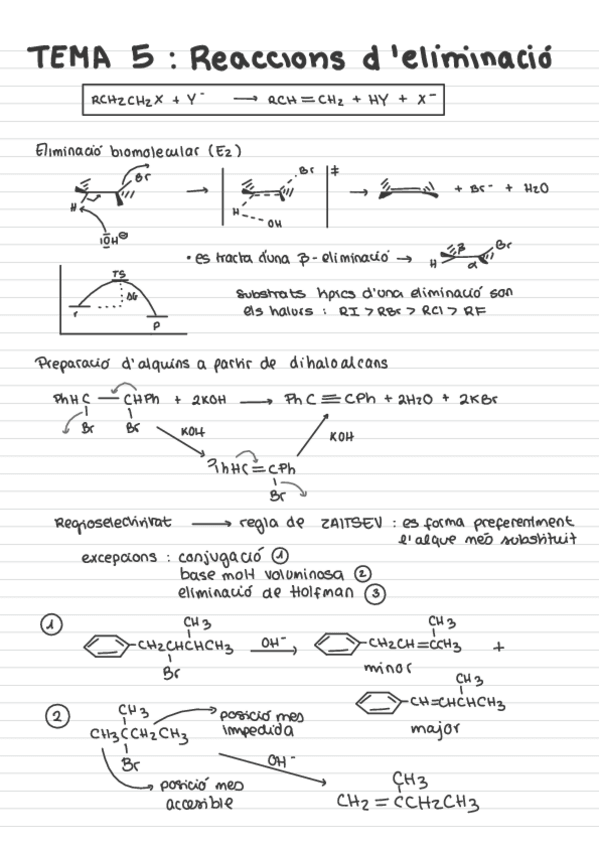 TEMA 5 : Reaccions d'eliminació
RCH2CH2X + Y⁻ → RCH=CH2 + HY + X⁻
Eliminació biomolecular (E2)
Br
H
IOH⊖
Br
H
OH
‡
+ Br⁻ + H2O
• es tracta d'una β-eliminació →
H
β
α
Br
TS
ΔG
r
P
substrats típics d'una eliminació son
els halurs : RI > RBr > RCl > RF
Preparació d'alquins a partir de dihaloalcans
PhHC — CHPh + 2KOH → PhC≡CPh + 2H2O + 2KBr
Br Br
KOH
KOH
PhHC=CPh
Br
Regioselectivitat → regla de ZAITSEV : es forma preferentment
l'alque més substituit
excepcions : conjugació ①
base molt voluminosa ②
eliminació de Hoffman ③
①
CH3
CH2CHCHCH3
Br
OH⁻
CH3
CH2CH=CCH3 +
minor
CH3
CH=CHCHCH3
major
②
CH3
CH3CCH2CH3
Br
posició mes
impedida
posició mes
accesible
OH⁻
CH3
CH2=CCH2CH3